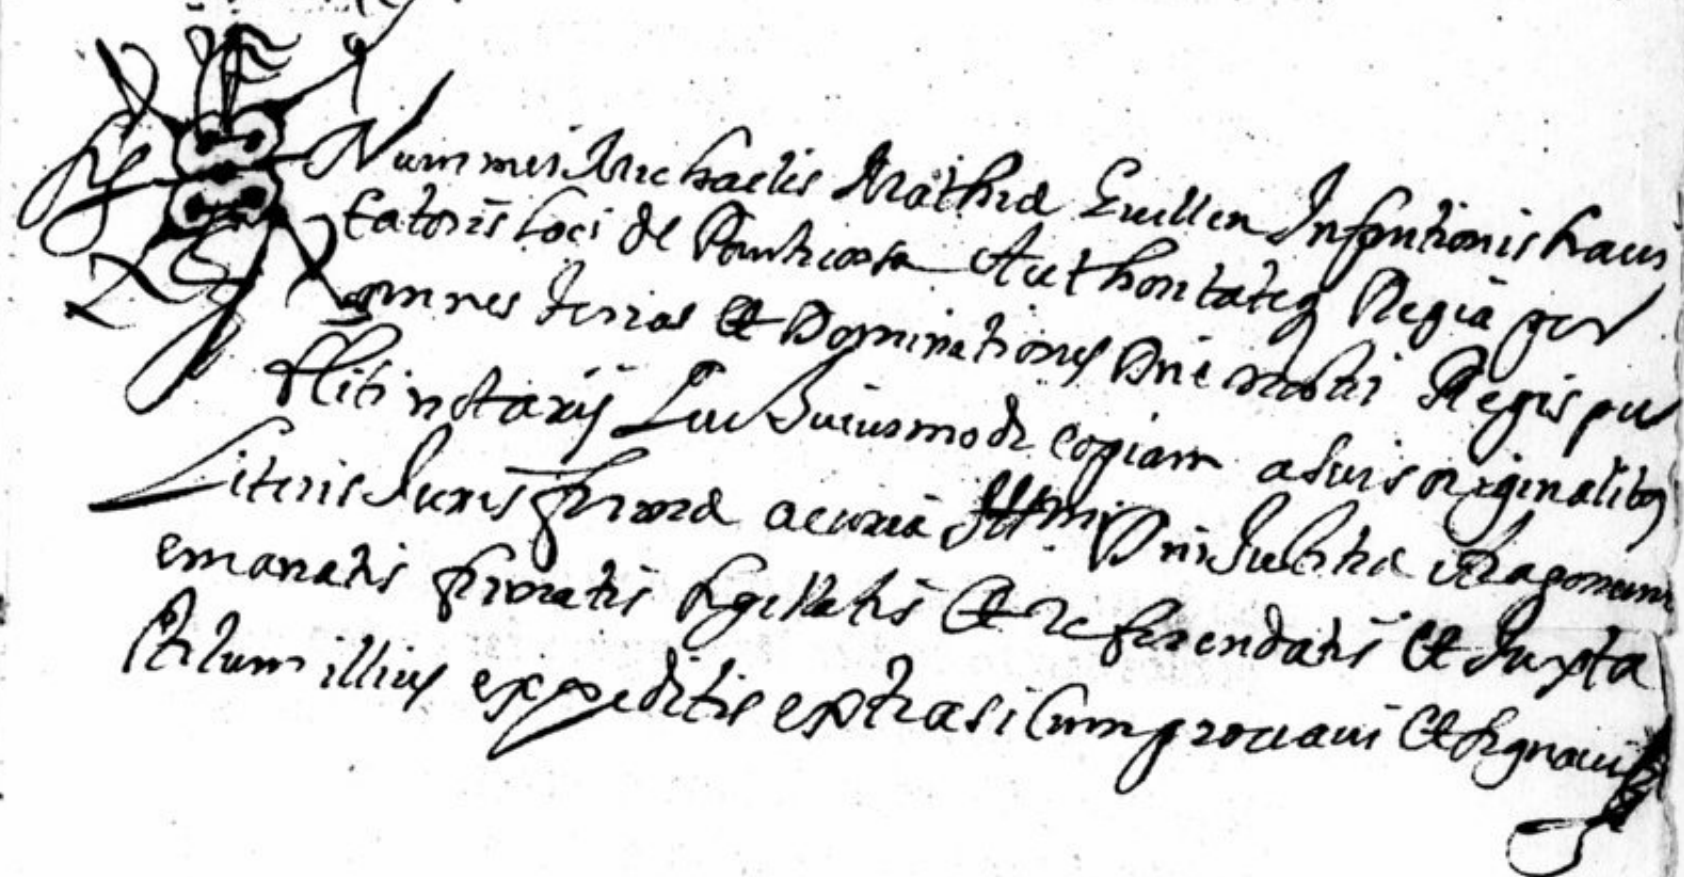 Num mei Michaelis Mathiæ Guillen Infantionis havi
tatoris loci de Panticosa Authoritateq Regia per
omnes terras et Dominationes Dni nostri Regis pu
blici notarij Qui huiusmodi copiam a suis originalibq
Literis Juris firmæ a curia Illmi Dni Justitiæ Aragonum
emanatis firmatis sigillatis et referendatis et Juxta
stilum illius expeditis extrasi Cumprovavi et signavi